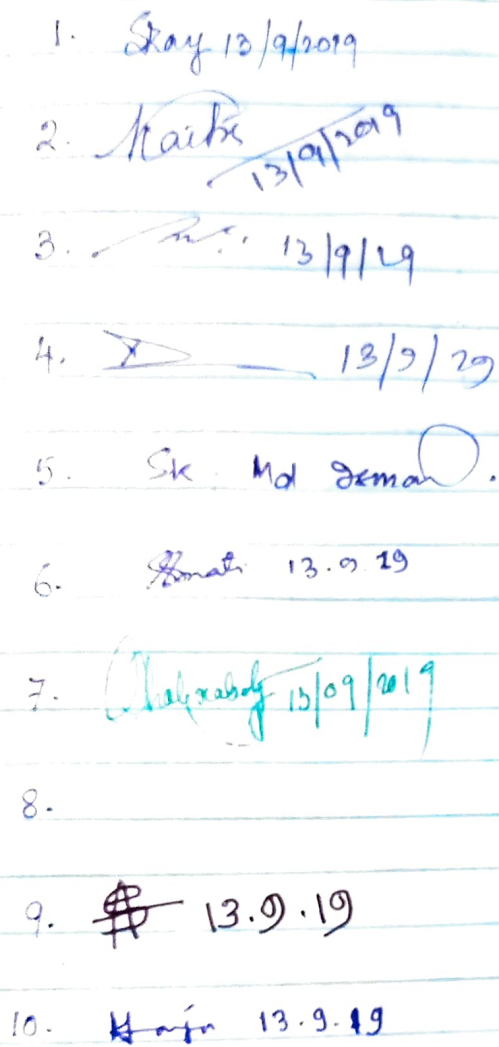 1. SRay 13/9/2019
2. Maiti 13/9/2019
3. 13/9/19
4. 13/9/29
5. Sk Md Osman.
6. 13.9.19
7. Chakraborty 13/09/2019
8.
9. 13.9.19
10. 13.9.19